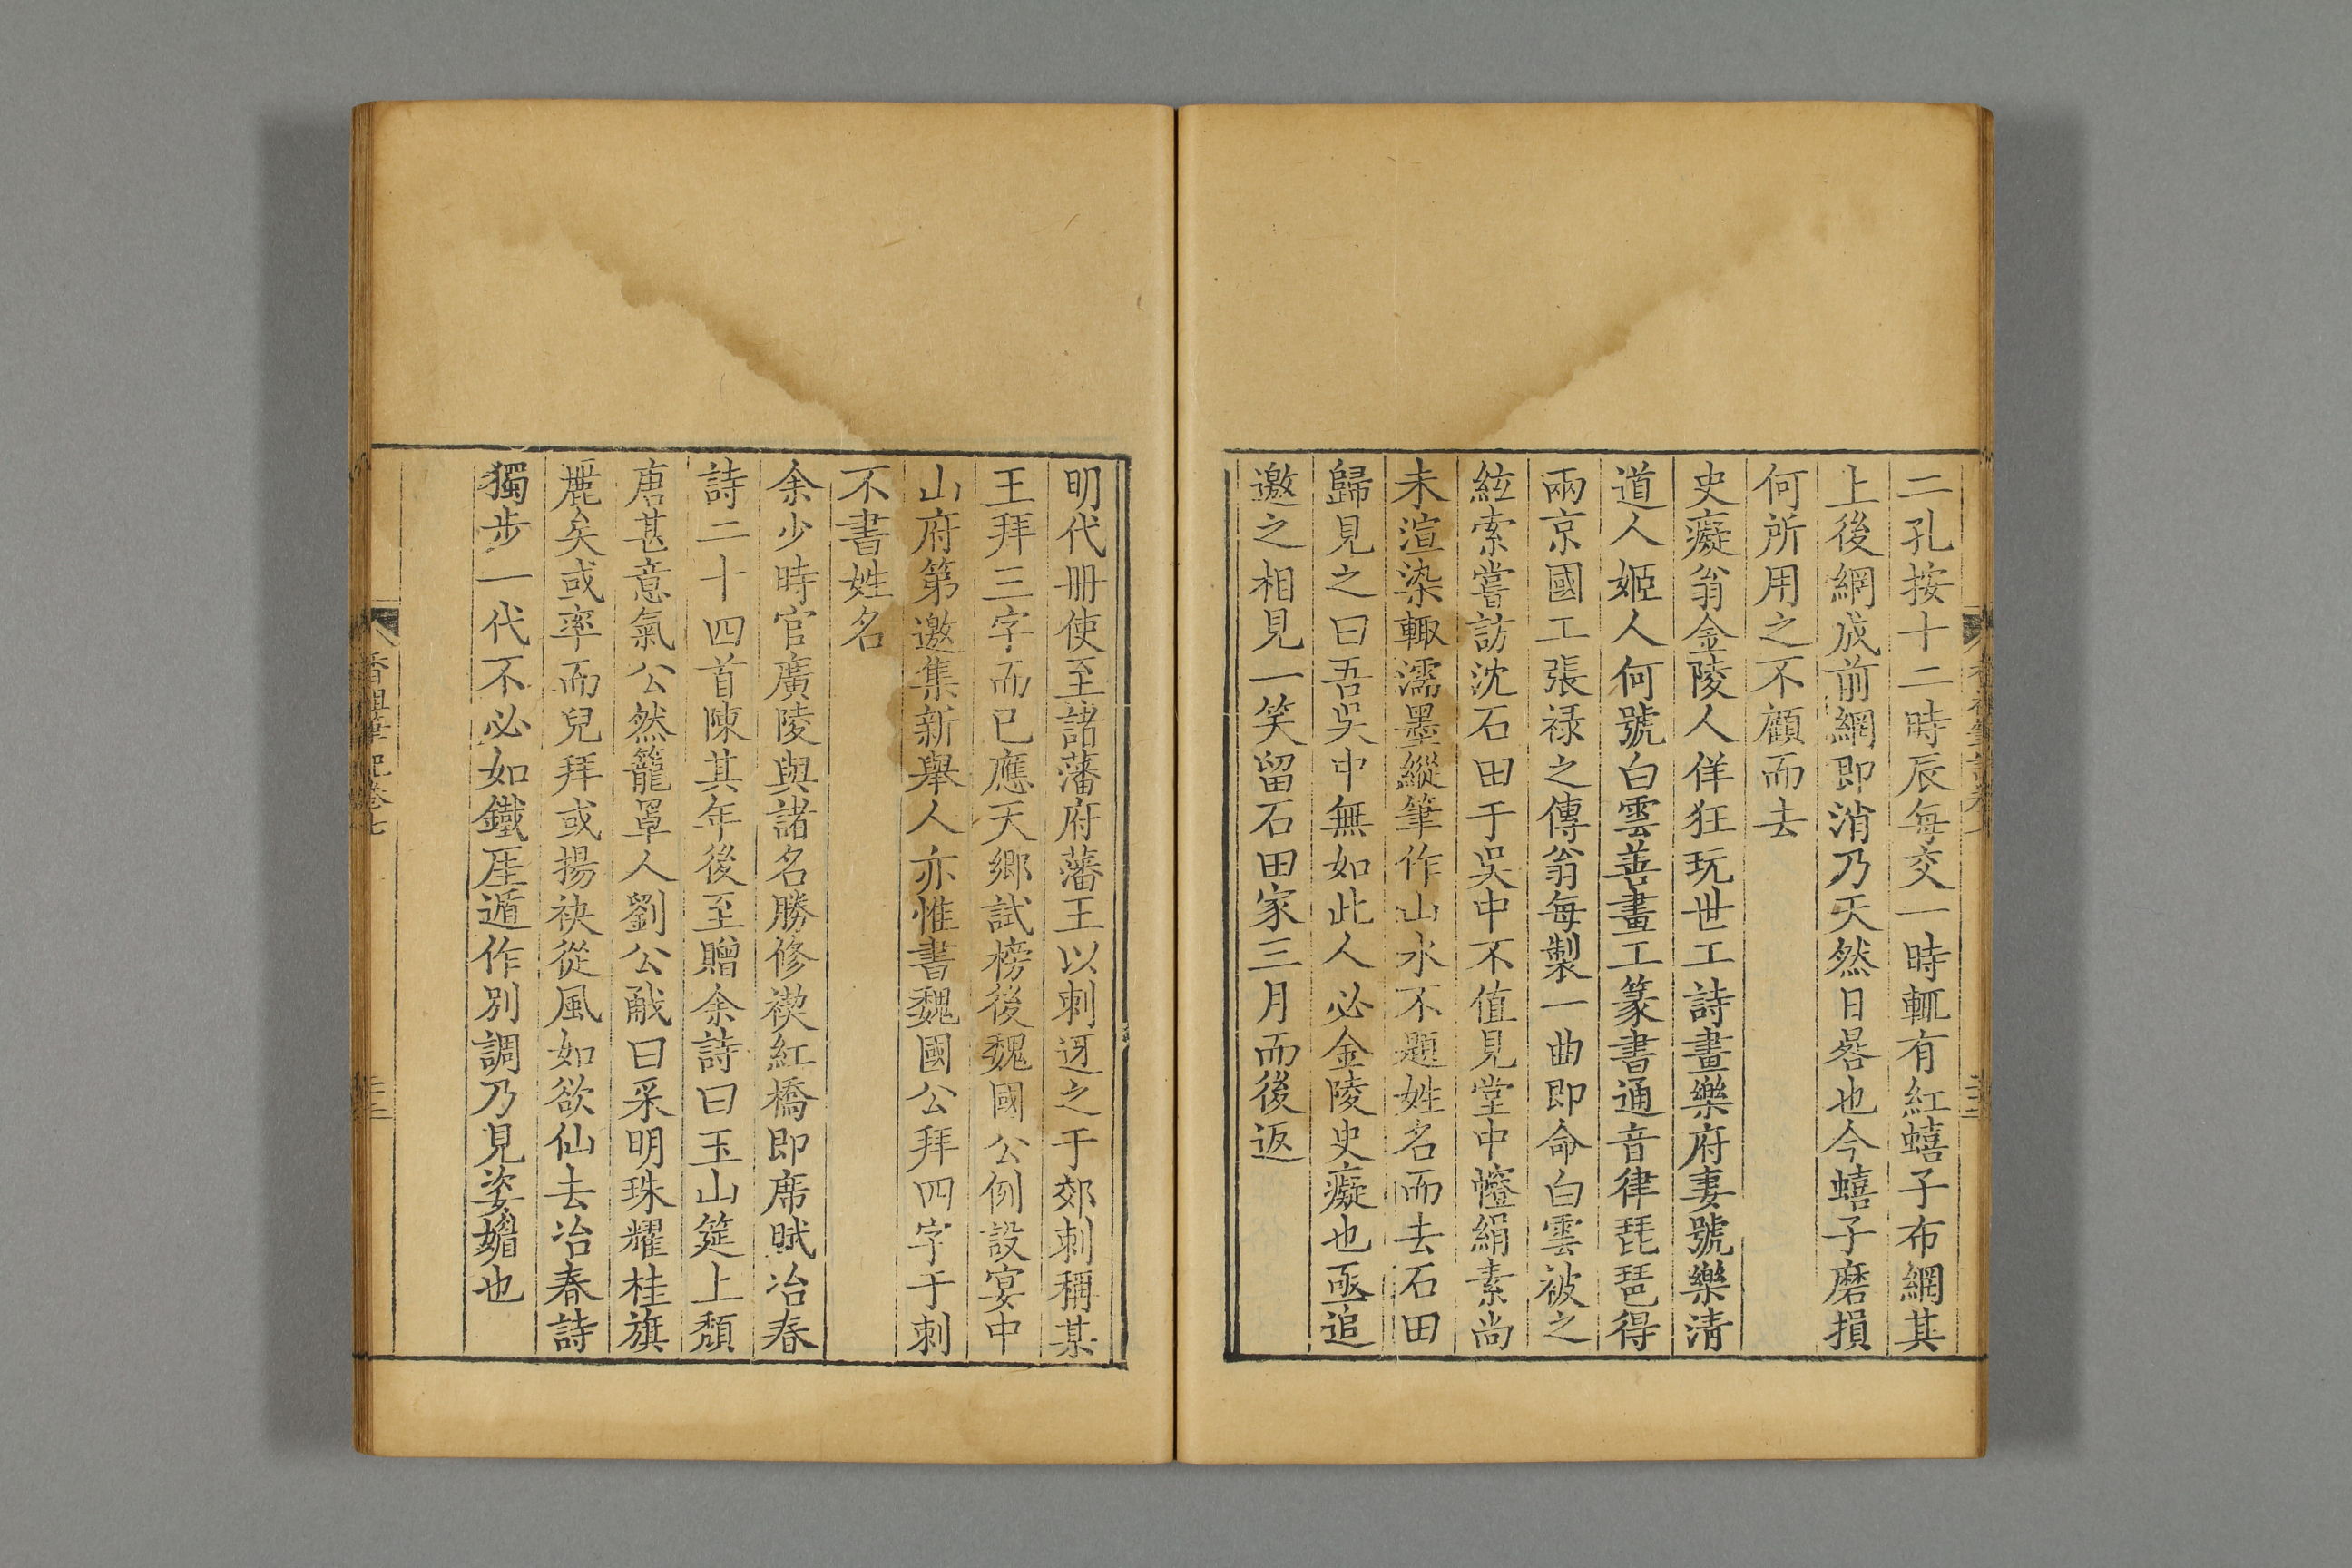 二孔按十二時辰每交一時輒有紅蟢子布網其
上後網成前網即消乃天然日晷也今蟢子磨損
何所用之不顧而去
史癡翁金陵人佯狂玩世工詩畫樂府妻號樂清
道人姬人何號白雲善畫工篆書通音律琵琶得
兩京國工張禄之傳翁每製一曲即命白雲被之
絃索嘗訪沈石田于吳中不值見堂中幛絹素尚
未渲染輙濡墨縱筆作山水不題姓名而去石田
歸見之曰吾吳中無如此人必金陵史癡也亟追
邀之相見一笑留石田家三月而後返
明代冊使至諸藩府藩王以刺迓之于郊刺稱某
王拜三字而已應天鄉試榜後魏國公例設宴中
山府第邀集新舉人亦惟書魏國公拜四字于刺
不書姓名
余少時官廣陵與諸名勝修禊紅橋即席賦冶春
詩二十四首陳其年後至贈余詩曰玉山筵上頹
唐甚意氣公然籠罩人劉公㦷曰采明珠耀桂旗
麗矣或率而兒拜或揚袂從風如欲仙去冶春詩
獨步一代不必如鐵厓遁作別調乃見姿媚也
香祖筆記卷七